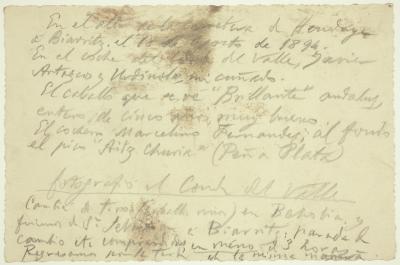 En el alto de la carretera de Hendaya
a Biarritz, el 18 de Agosto de 1894.
En el coche del Conde del Valle, Javier
Artazco y Urdinola, mi cuñado.
El caballo que se ve "Brillante" andaluz,
entero, de cinco años, muy bueno
El cochero Marcelino Fernandez; al fondo
el pico "Aitz Churia" (Peña Plata)
fotografió el Conde del Valle
Cambio de tiro (caballo mio) en Behobia, y
fuimos de Sn Sebastian a Biarritz; parada
cambio etc comprendidos en menos de 3 horas
Regresamos por la tarde de la misma manera.